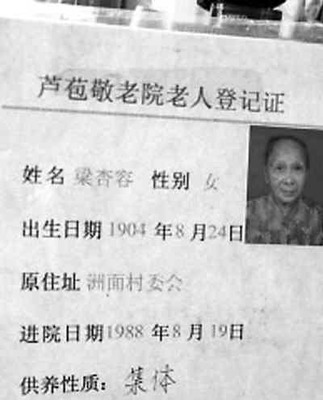 芦苞敬老院老人登记证
姓名 梁杏容 性别 女
出生日期 1904 年 8 月 24 日
原住址 洲面村委会
进院日期 1988 年 8 月 19 日
供养性质：集体